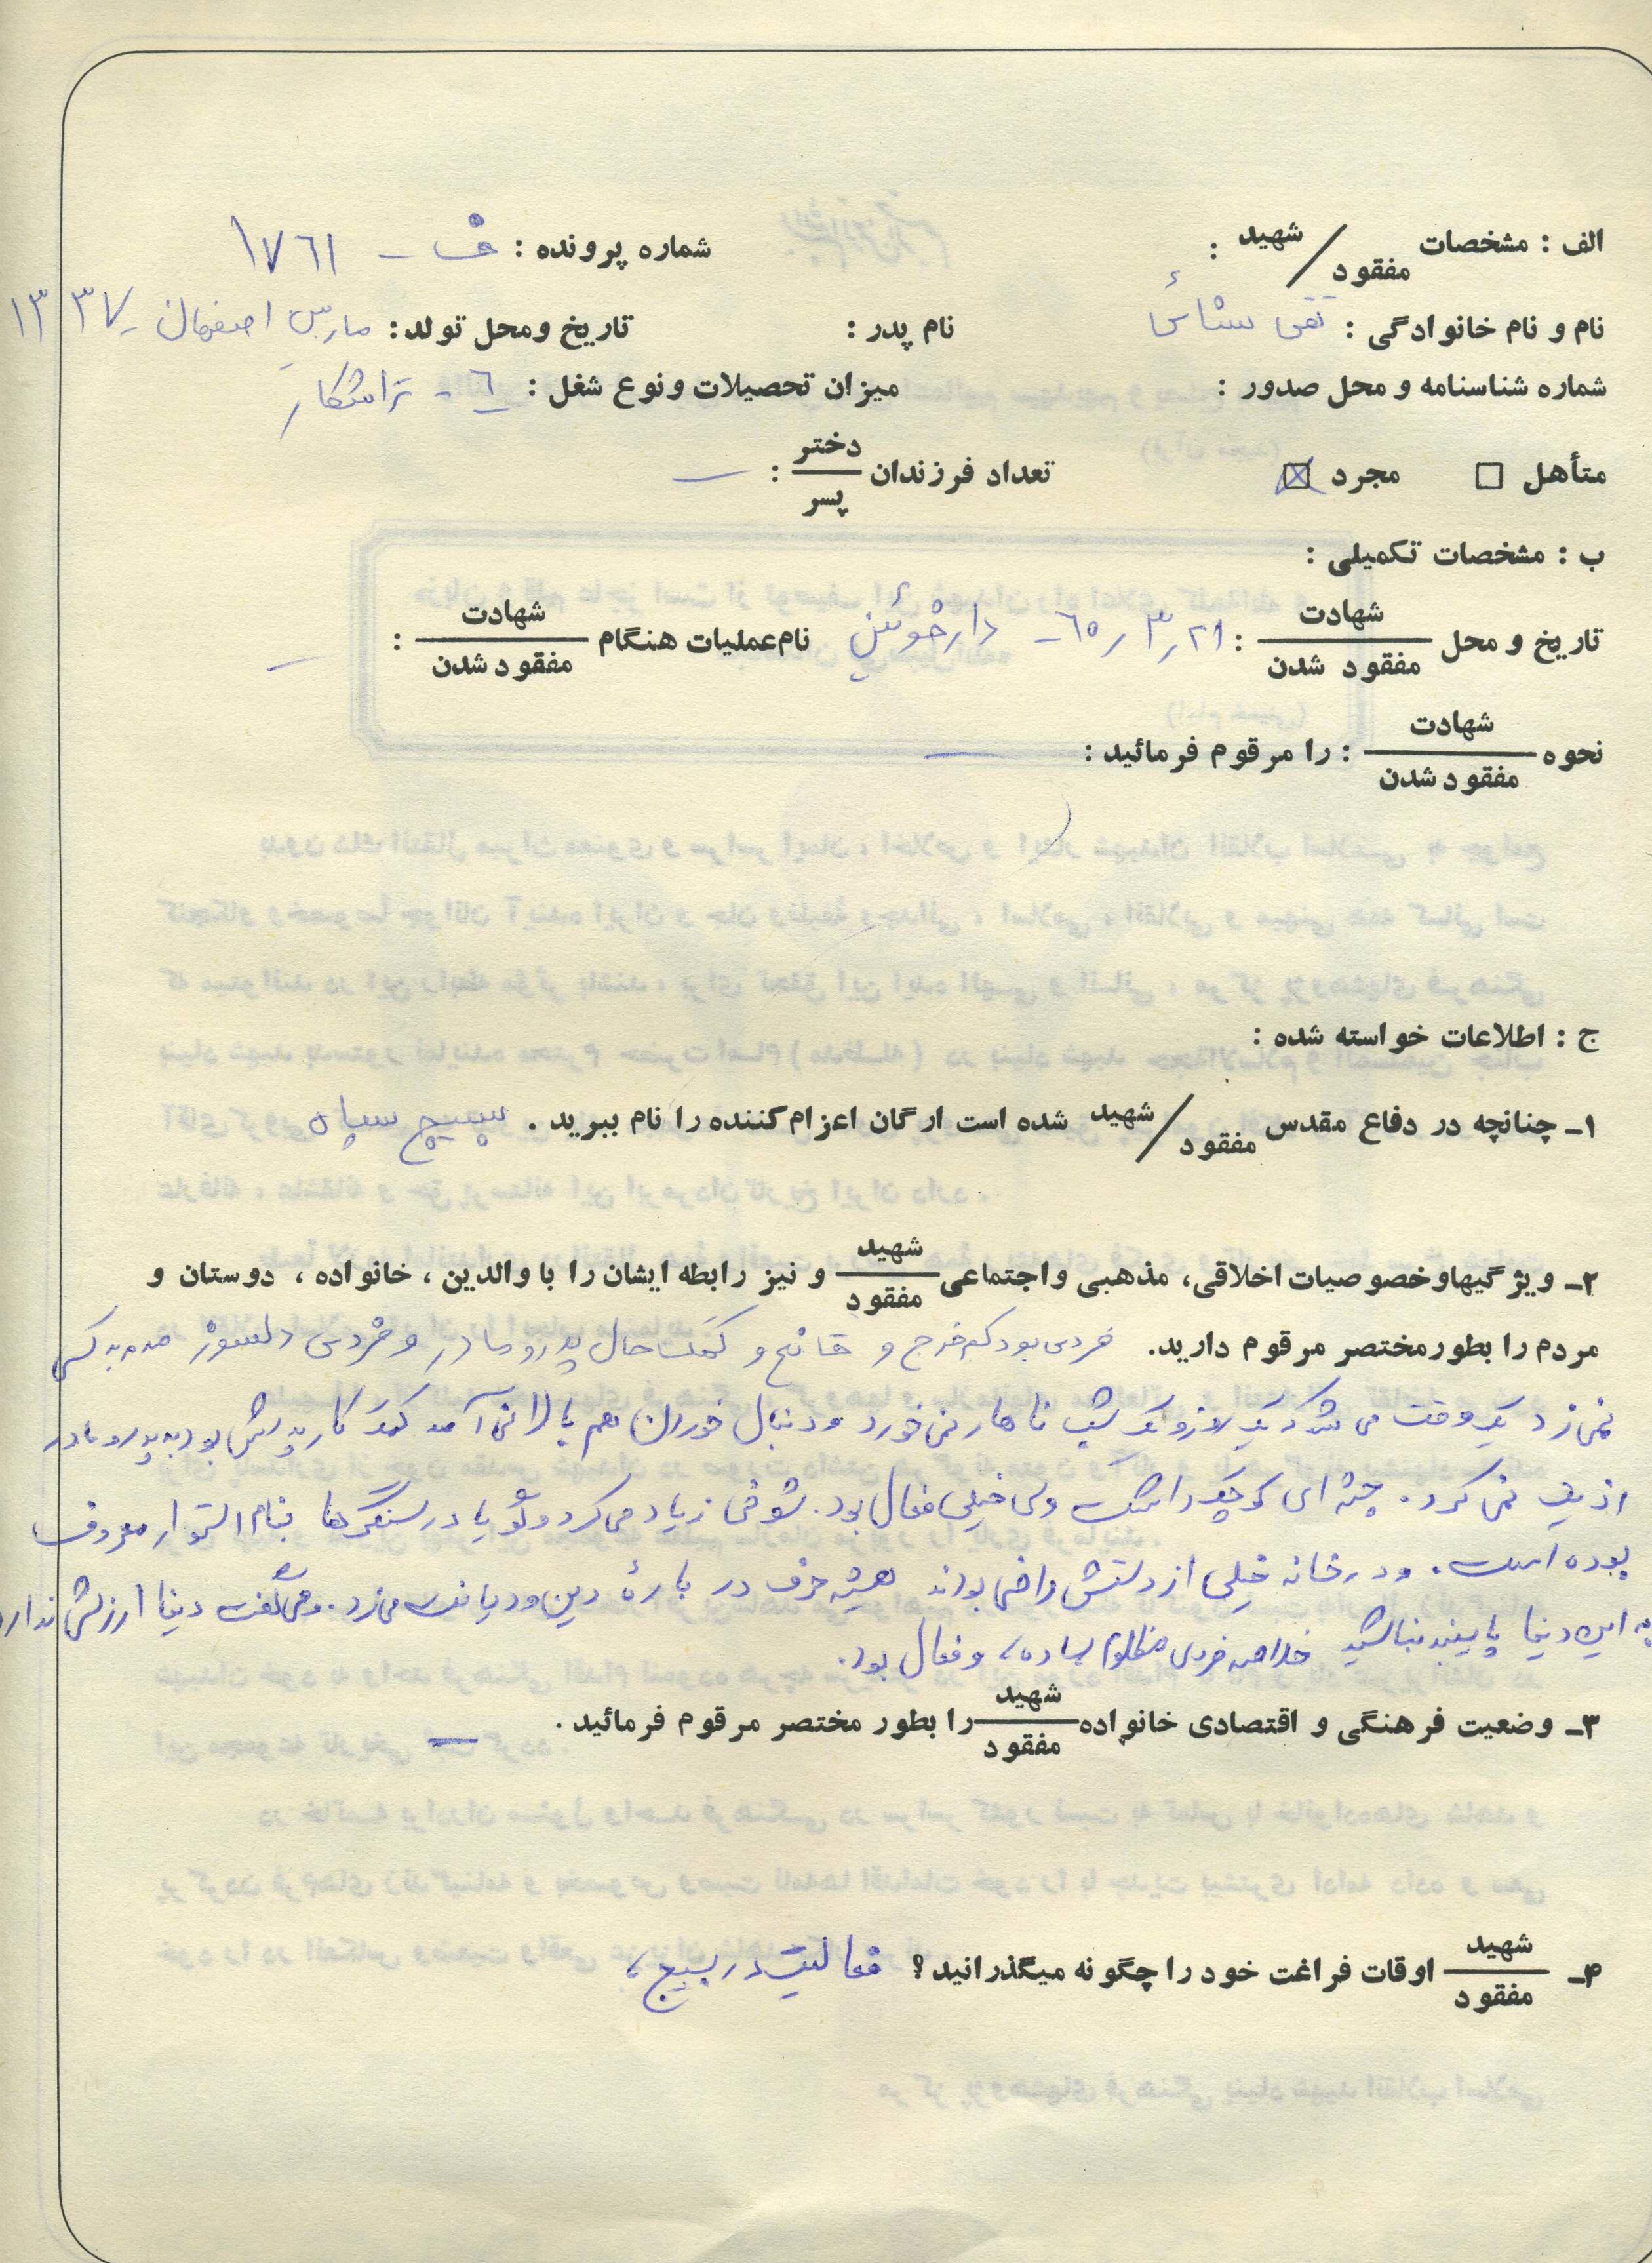 الف : مشخصات شهید / مفقود : شماره پرونده : ف - ١٧٦١
نام و نام خانوادگی : تقی نام پدر : تاریخ ومحل تولد: ماربین اصفهان - ١٣٣٧
شماره شناسنامه و محل صدور : میزان تحصیلات ونوع شغل : ٦ - تراشکار
متأهل □ مجرد ☒ تعداد فرزندان دختر / پسر : —
ب : مشخصات تکمیلی :
تاریخ و محل شهادت / مفقود شدن : ٢١ ر ٣ ر ٦٠ - دارخوئین نام عملیات هنگام شهادت / مفقود شدن : —
نحوه شهادت / مفقود شدن : را مرقوم فرمائید : —
ج : اطلاعات خواسته شده :
١ـ چنانچه در دفاع مقدس شهید / مفقود شده است ارگان اعزام کننده را نام ببرید . بسیج سپاه
٢ـ ویژگیهاوخصوصیات اخلاقی، مذهبی واجتماعی شهید / مفقود و نیز رابطه ایشان را با والدین ، خانواده ، دوستان و
مردم را بطورمختصر مرقوم دارید. فردی بود کم خرج و قانع و کمک حال پدر و مادر و فردی دلسوز صدمه به کسی
نمی زد یک وقت می شد که یک روز و یک شب ناهار نمی خورد و دنبال خوردن هم بالا نمی آمد کمک کار پدرش بود به پدر و مادر
اذیت نمی کرد. جثه ای کوچک داشت ولی خیلی فعال بود. شوخی زیاد می کرد و گویا در سنگرها بنام استوار معروف
بوده است. و در خانه خیلی از دستش راضی بودند همیشه حرف در بارهٔ دین و دیانت می زد. و می گفت دنیا ارزش ندارد
به این دنیا پایبند نباشید خلاصه فردی مظلوم ساده، و فعال بود.
٣ـ وضعیت فرهنگی و اقتصادی خانواده شهید / مفقود را بطور مختصر مرقوم فرمائید . —
۴ـ شهید / مفقود اوقات فراغت خود را چگونه میگذرانید؟ فعالیت در بسیج،